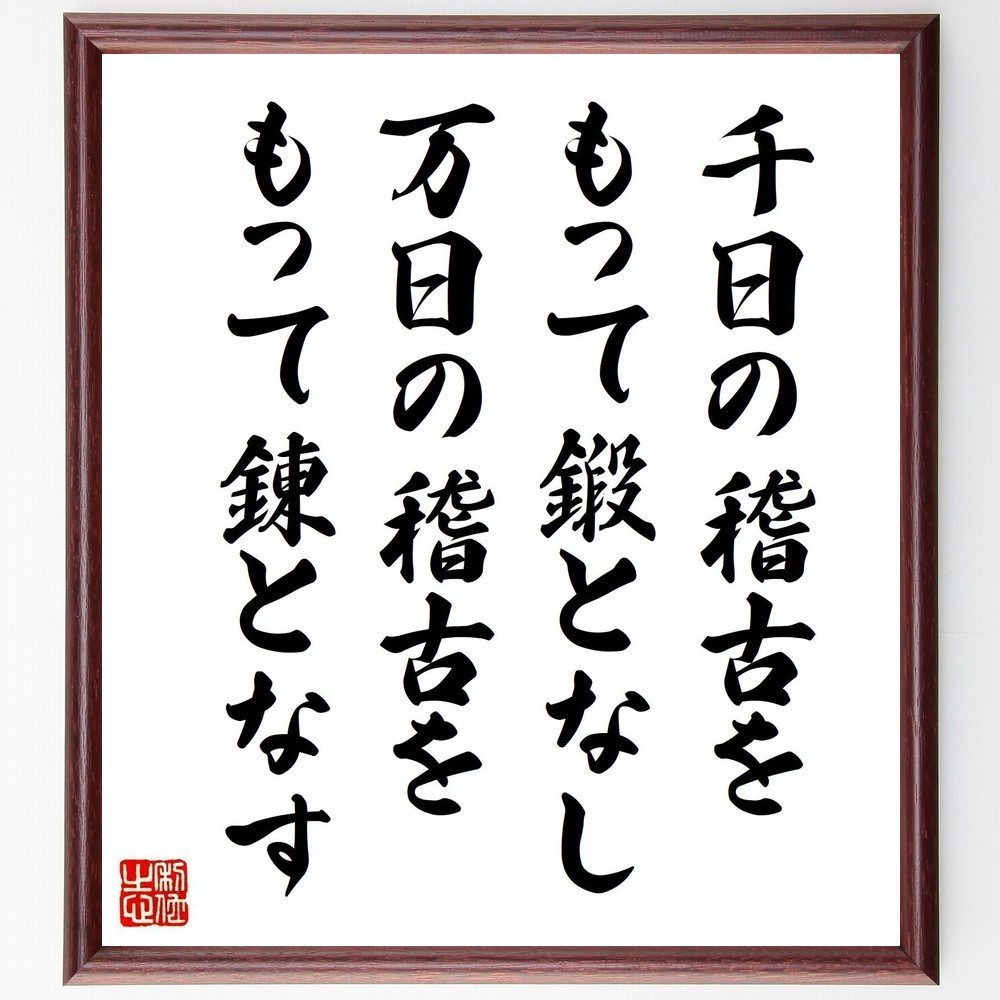 千日の稽古を
もって鍛となし
万日の稽古を
もって錬となす